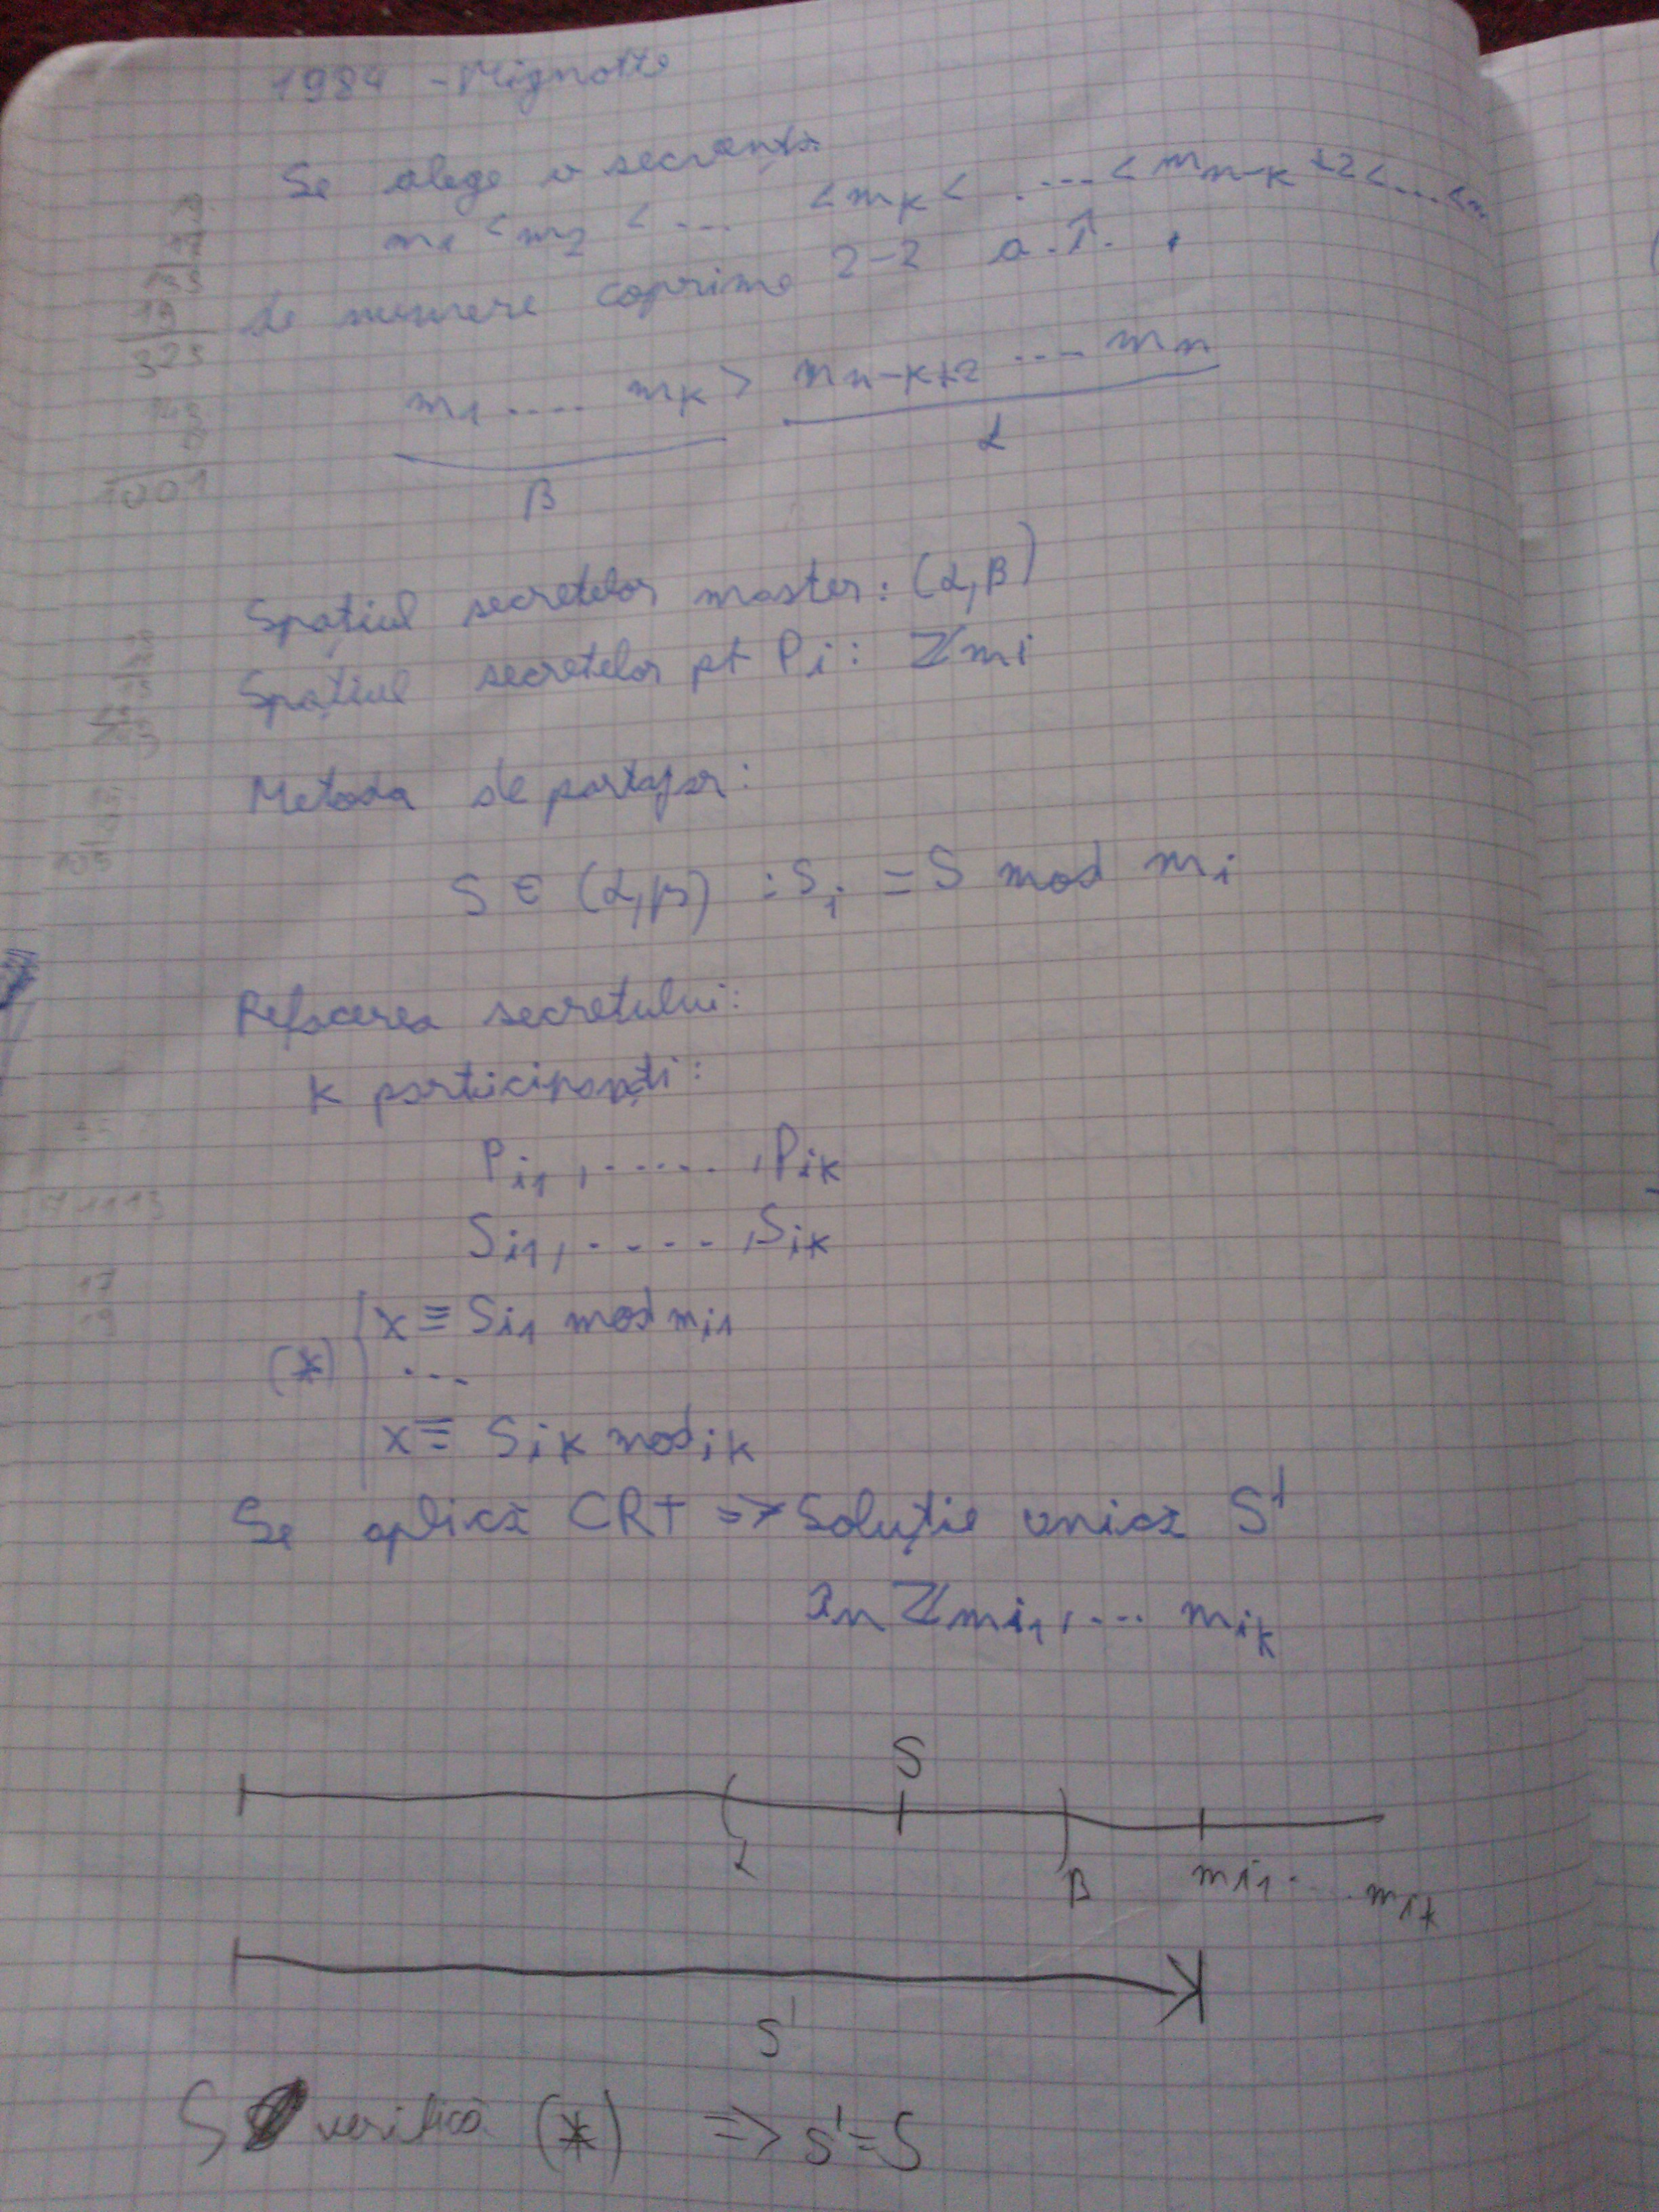 1984 - Mignotte
Se alege o secvență
m1 < m2 < ... < mk < .... < mn-k+2 < ... < mn
de numere coprime 2-2 a.î.
m1 .... mk > mn-k+2 .... mn
β α
Spațiul secretelor master: (α, β)
Spațiul secretelor pt Pi: ℤmi
Metoda de partajar:
S ∈ (α, β) : Si = S mod mi
Refacerea secretului:
k participanți:
Pi1, ......, Pik
Si1, ......, Sik
x ≡ Si1 mod mi1
(*) ...
x ≡ Sik mod ik
Se aplică CRT => Soluție unică S'
în ℤmi1, ... mik
S
α β mi1 ..... mik
S'
S verifică (*) => S' = S
325
143
1001
105
17 11 13
17
19